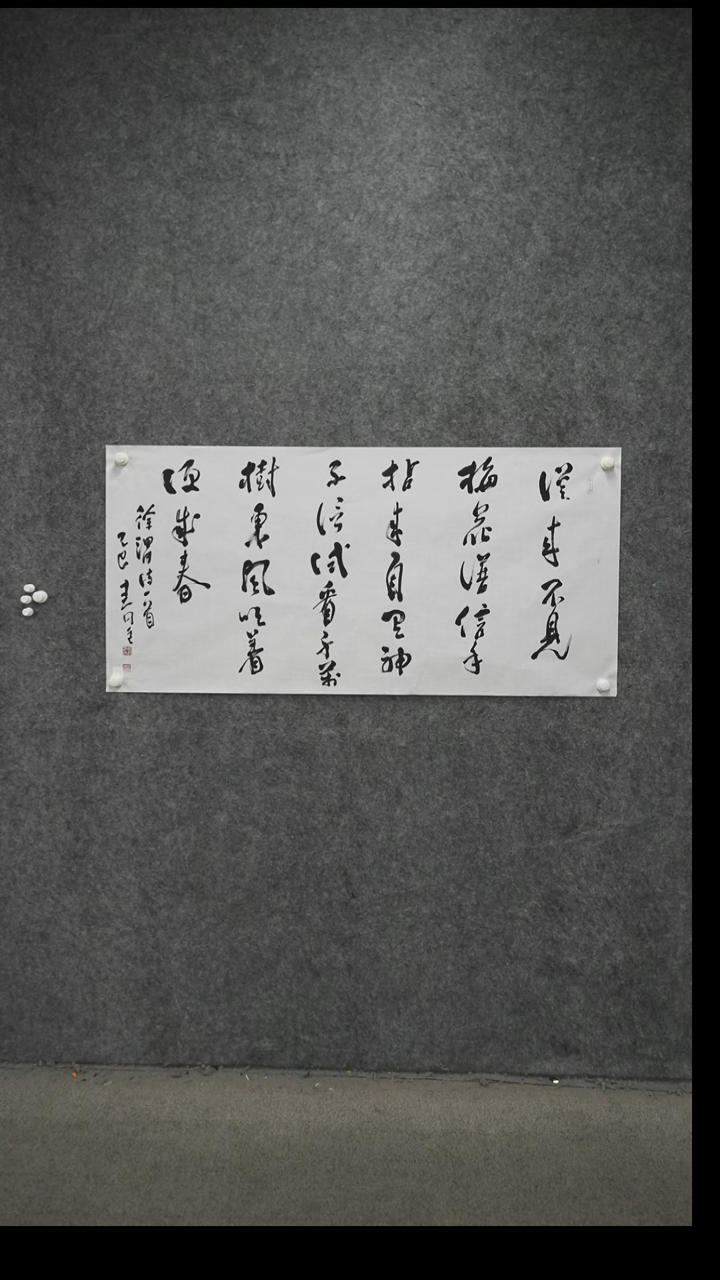 從來不見
梅花譜信手
拈來自神
不信試看千萬
樹東風吹着
便成春
徐渭詩一首
乙巳